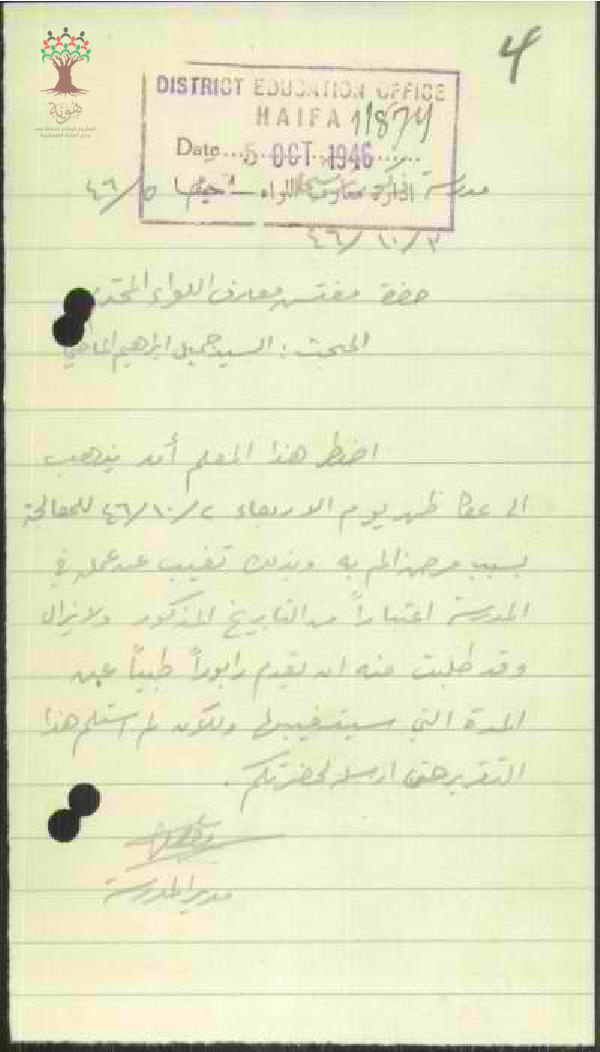 4
هوية
DISTRICT EDUCATION OFFICE
HAIFA 11874
Date... 5 OCT 1946
ادارة معارف اللواء – حيفا
مدرسة ٤٦/٥
٤٦/١٠/٣
حضرة مفتش معارف اللواء المحترم
المبحث : السيد جميل ابراهيم الماضي
اضطر هذا المعلم أن يذهب
الى عكا ظهر يوم الاربعاء ٤٦/١٠/٢ للمعالجة
بسبب مرض الم به وبذلك تغيب عن عمله في
المدرسة اعتباراً من التاريخ المذكور ولا يزال
وقد طلبت منه ان يقدم رابوراً طبياً عن
المدة التي سيتغيبها وللآن لم استلم هذا
التقرير حتى ارسله لحضرتكم .
مدير المدرسة